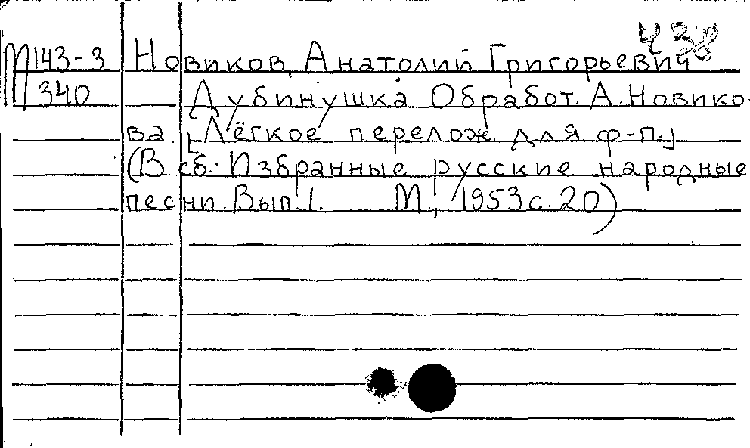 438
М143-3 Новиков, Анатолий Григорьевич
340 Дубинушка Обработ. А. Новико-
ва. [Лёгкое перелож для ф-п.]
(В сб.: Избранные русские народные
песни. Вып 1. М., 1953 с. 20)